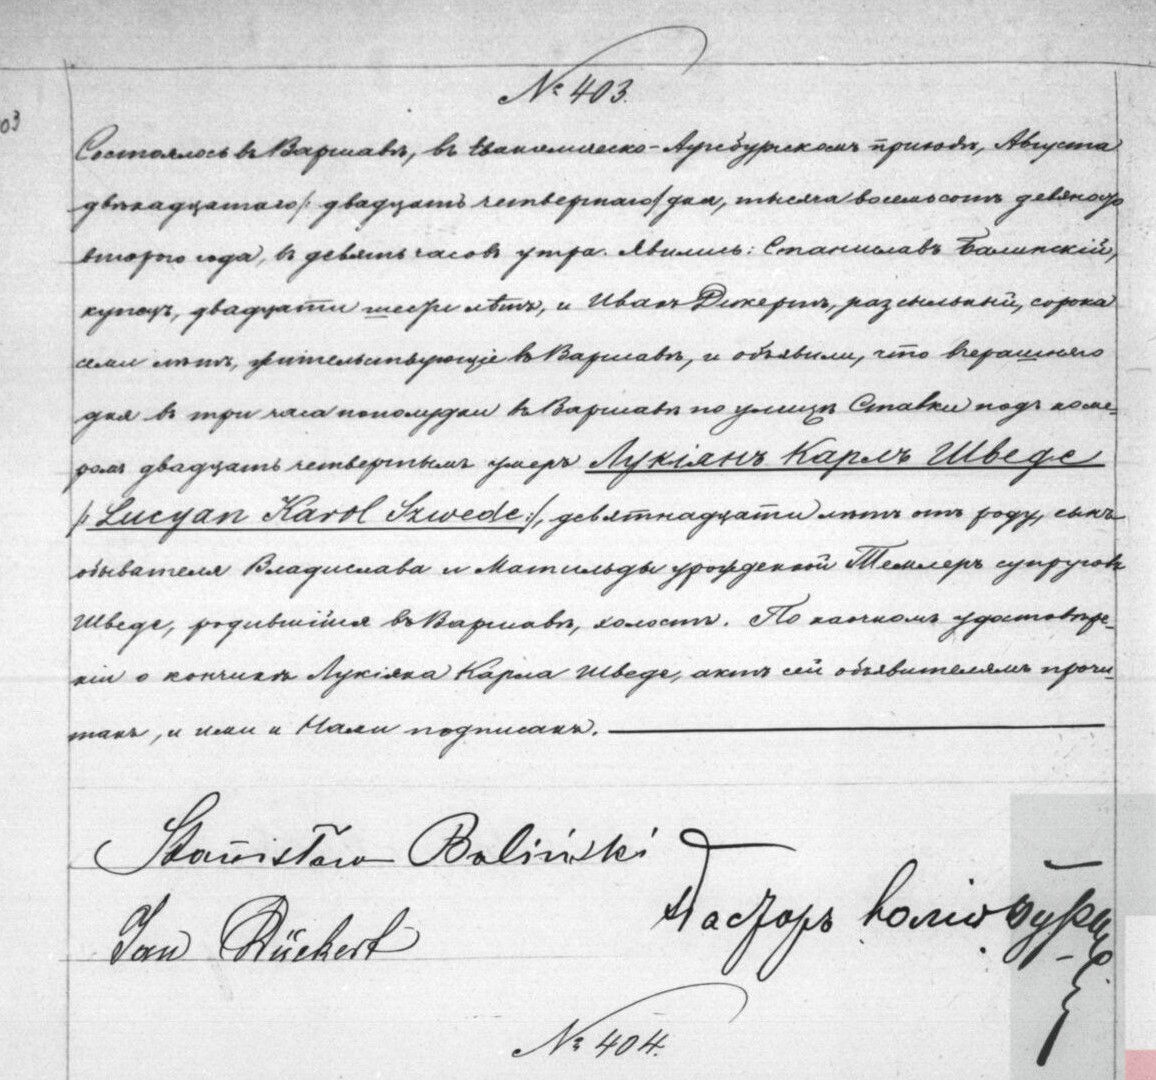 № 403.
03
Состоялось въ Варшавѣ, въ Евангелическо-Аугсбургскомъ приходѣ, Августа
двѣнадцатаго /: двадцать четвертаго / дня, тысяча восемьсотъ девяносто
второго года, въ девять часовъ утра. Явились: Станиславъ Балинскій,
купецъ, двадцати шести лѣтъ, и Иванъ Рюкертъ, разсыльный, сорока
семи лѣтъ, жительствующіе въ Варшавѣ, и объявили, что вчерашняго
дня въ три часа пополудни въ Варшавѣ по улицѣ Ставки подъ номе-
ромъ двадцать четвертымъ умеръ Лукіянъ Карлъ Шведе
/: Lucyan Karol Szwede :/, девятнадцати лѣтъ отъ роду, сынъ
обывателя Владислава и Матильды урожденной Темлеръ супруговъ
Шведе, родившійся въ Варшавѣ, холостъ. По наочномъ удостовѣре-
ніи о кончинѣ Лукіяна Карла Шведе, актъ сей объявителямъ прочи-
танъ, и ими и Нами подписанъ.
Stanisław Baliński
Jan Rückert
Пасторъ
№ 404.